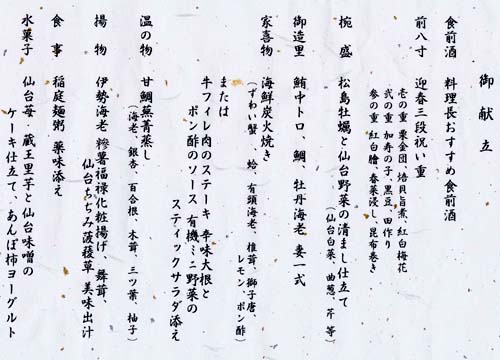 御献立
食前酒　料理長おすすめ食前酒
前八寸　迎春三段祝い重
壱の重 栗金団、焙貝旨煮、紅白梅花
弐の重 加寿の子、黒豆、田作り
参の重 紅白膾、春菜浸し、昆布巻き
椀盛　松島牡蠣と仙台野菜の清まし仕立て
（仙台白菜、曲葱、芹 等）
御造里　鮪中トロ、鯛、牡丹海老　妻一式
家喜物　海鮮炭火焼き
（ずわい蟹、蛤、有頭海老、椎茸、獅子唐、
レモン、ポン酢）
または
牛フィレ肉のステーキ 辛味大根と
ポン酢のソース 有機ミニ野菜の
スティックサラダ添え
温の物　甘鯛蕪菁蒸し
（海老、銀杏、百合根、木茸、三ツ葉、柚子）
揚物　伊勢海老 糝薯福禄化粧揚げ、舞茸、
仙台ちぢみ菠薐草 美味出汁
食事　稲庭麺粥　薬味添え
水菓子　仙台苺　蔵王里芋と仙台味噌の
ケーキ仕立て、あんぽ柿ヨーグルト